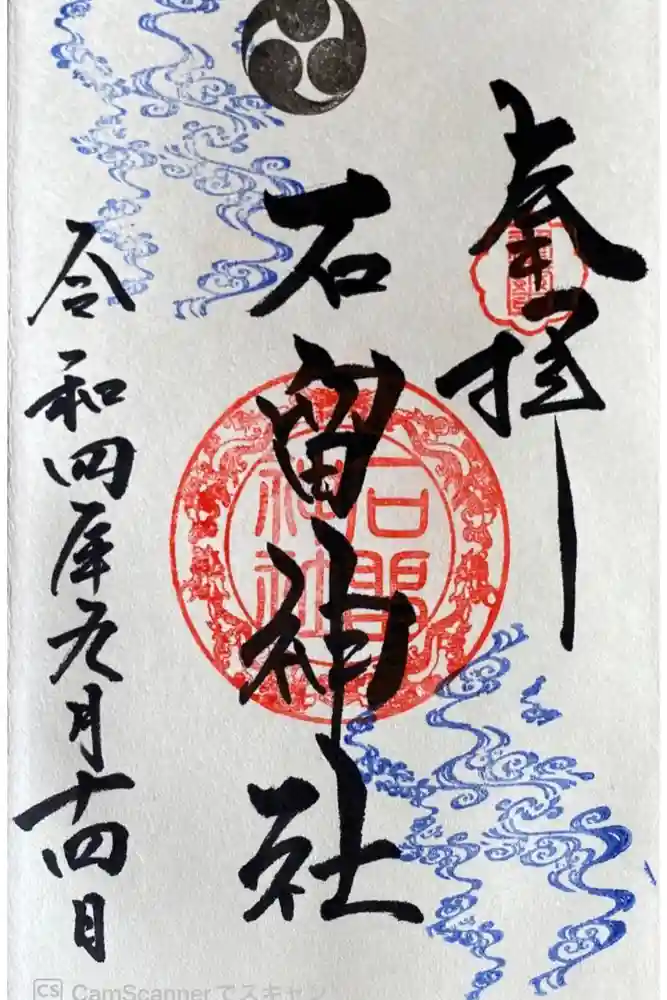 奉拝
石留神社
令和四年九月十四日
石留神社
CS CamScannerでスキャン